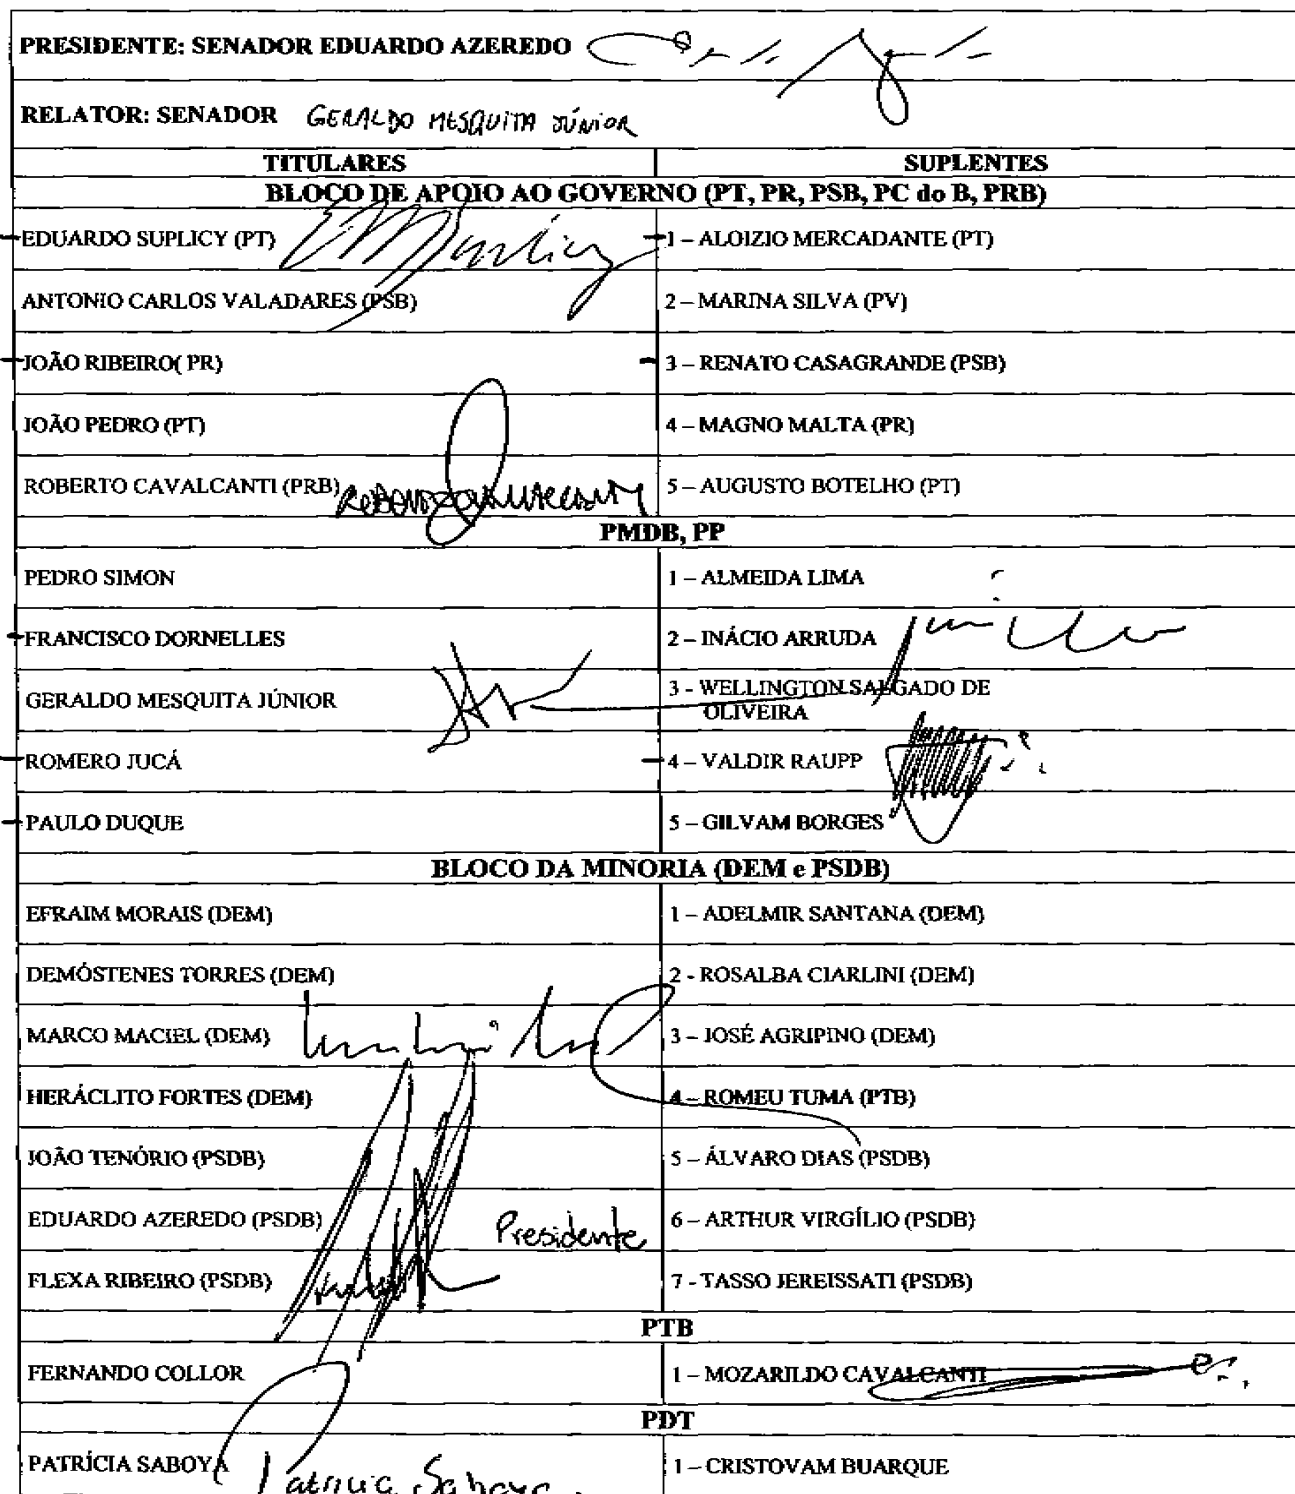 PRESIDENTE: SENADOR EDUARDO AZEREDO
RELATOR: SENADOR GERALDO MESQUITA JÚNIOR
TITULARES SUPLENTES
BLOCO DE APOIO AO GOVERNO (PT, PR, PSB, PC do B, PRB)
EDUARDO SUPLICY (PT) 1 – ALOIZIO MERCADANTE (PT)
ANTONIO CARLOS VALADARES (PSB) 2 – MARINA SILVA (PV)
JOÃO RIBEIRO( PR) 3 – RENATO CASAGRANDE (PSB)
JOÃO PEDRO (PT) 4 – MAGNO MALTA (PR)
ROBERTO CAVALCANTI (PRB) 5 – AUGUSTO BOTELHO (PT)
PMDB, PP
PEDRO SIMON 1 – ALMEIDA LIMA
FRANCISCO DORNELLES 2 – INÁCIO ARRUDA
GERALDO MESQUITA JÚNIOR 3 - WELLINGTON SALGADO DE
OLIVEIRA
ROMERO JUCÁ 4 – VALDIR RAUPP
PAULO DUQUE 5 – GILVAM BORGES
BLOCO DA MINORIA (DEM e PSDB)
EFRAIM MORAIS (DEM) 1 – ADELMIR SANTANA (DEM)
DEMÓSTENES TORRES (DEM) 2 - ROSALBA CIARLINI (DEM)
MARCO MACIEL (DEM) 3 – JOSÉ AGRIPINO (DEM)
HERÁCLITO FORTES (DEM) 4 – ROMEU TUMA (PTB)
JOÃO TENÓRIO (PSDB) 5 – ÁLVARO DIAS (PSDB)
EDUARDO AZEREDO (PSDB) Presidente 6 – ARTHUR VIRGÍLIO (PSDB)
FLEXA RIBEIRO (PSDB) 7 - TASSO JEREISSATI (PSDB)
PTB
FERNANDO COLLOR 1 – MOZARILDO CAVALCANTI
PDT
PATRÍCIA SABOYA Patrícia Saboya 1 – CRISTOVAM BUARQUE